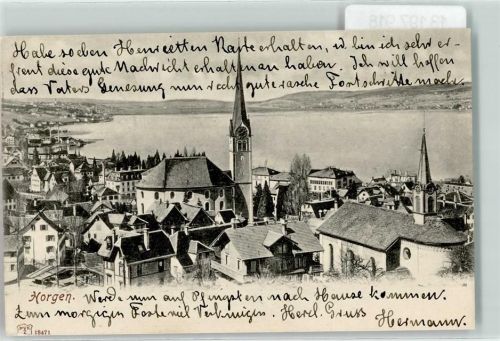 13 197 918
Habe soeben Henrietten Karte erhalten, u. bin ich sehr er-
freut diese gute Nachricht erhalten zu haben. Ich will hoffen
dass Vaters Genesung nun recht gute rasche Fortschritte mache.
Horgen. Werde nun auf Pfingsten nach Hause kommen.
Zum morgigen Feste viel Vergnügen. Herzl. Gruss
Hermann.
18471